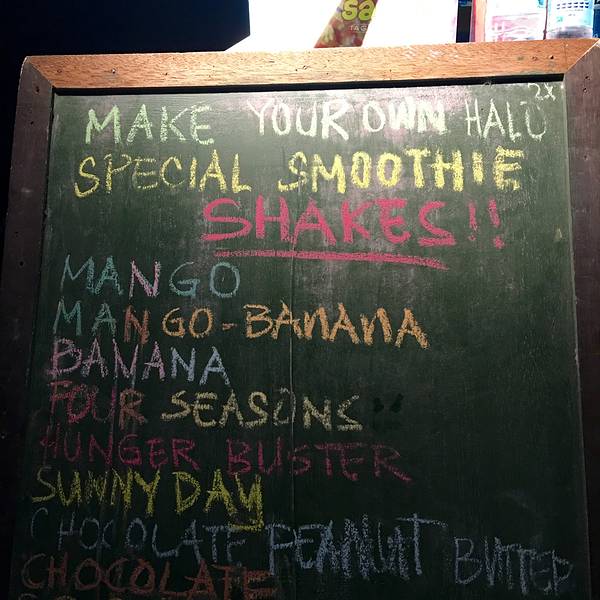 2x
MAKE YOUR OWN HALO
SPECIAL SMOOTHIE
SHAKES!!
MANGO
MANGO-BANANA
BANANA
FOUR SEASONS
HUNGER BUSTER
SUNNY DAY
CHOCOLATE PEANUT BUTTER
CHOCOLATE